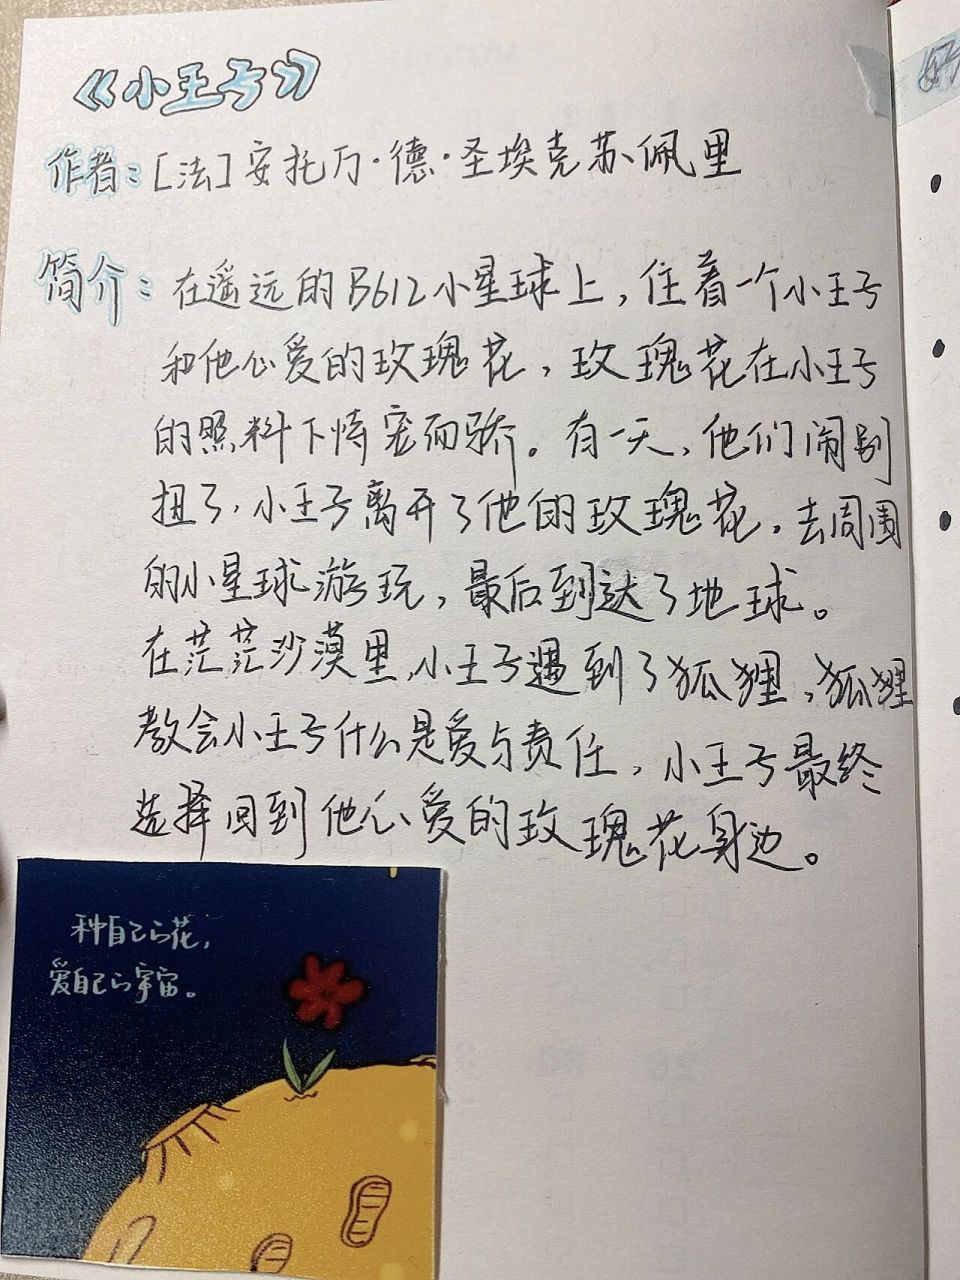 《小王子》
作者：[法]安托万·德·圣埃克苏佩里
简介：在遥远的B612小星球上，住着一个小王子
和他心爱的玫瑰花，玫瑰花在小王子
的照料下恃宠而骄。有一天，他们闹别
扭了，小王子离开了他的玫瑰花，去周围
的小星球游玩，最后到达了地球。
在茫茫沙漠里，小王子遇到了狐狸，狐狸
教会小王子什么是爱与责任，小王子最终
选择回到他心爱的玫瑰花身边。
种自己的花，
爱自己的宇宙。